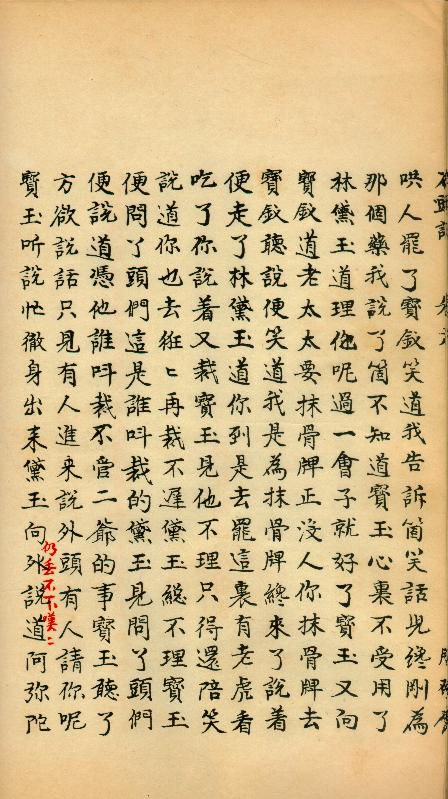 哄人罷了寶釵笑道我告訴箇笑話児纔剛為
那個藥我說了箇不知道寶玉心裏不受用了
林黛玉道理他呢過一會子就好了寶玉又向
寶釵道老太太要抹骨牌正沒人你抹骨牌去
寶釵聽說便笑道我是為抹骨牌纔來了說着
便走了林黛玉道你到是去罷這裏有老虎看
吃了你說着又裁寶玉見他不理只得還陪笑
說道你也去徃〻再裁不遲黛玉總不理寶玉
便問丫頭們這是誰呌裁的黛玉見問丫頭們
便說道憑他誰呌裁不管二爺的事寶玉聽了
方欲說話只見有人進來說外頭有人請你呢
寶玉听說忙徹身出来黛玉向外說道阿弥陀
仍丢不下嘆〻